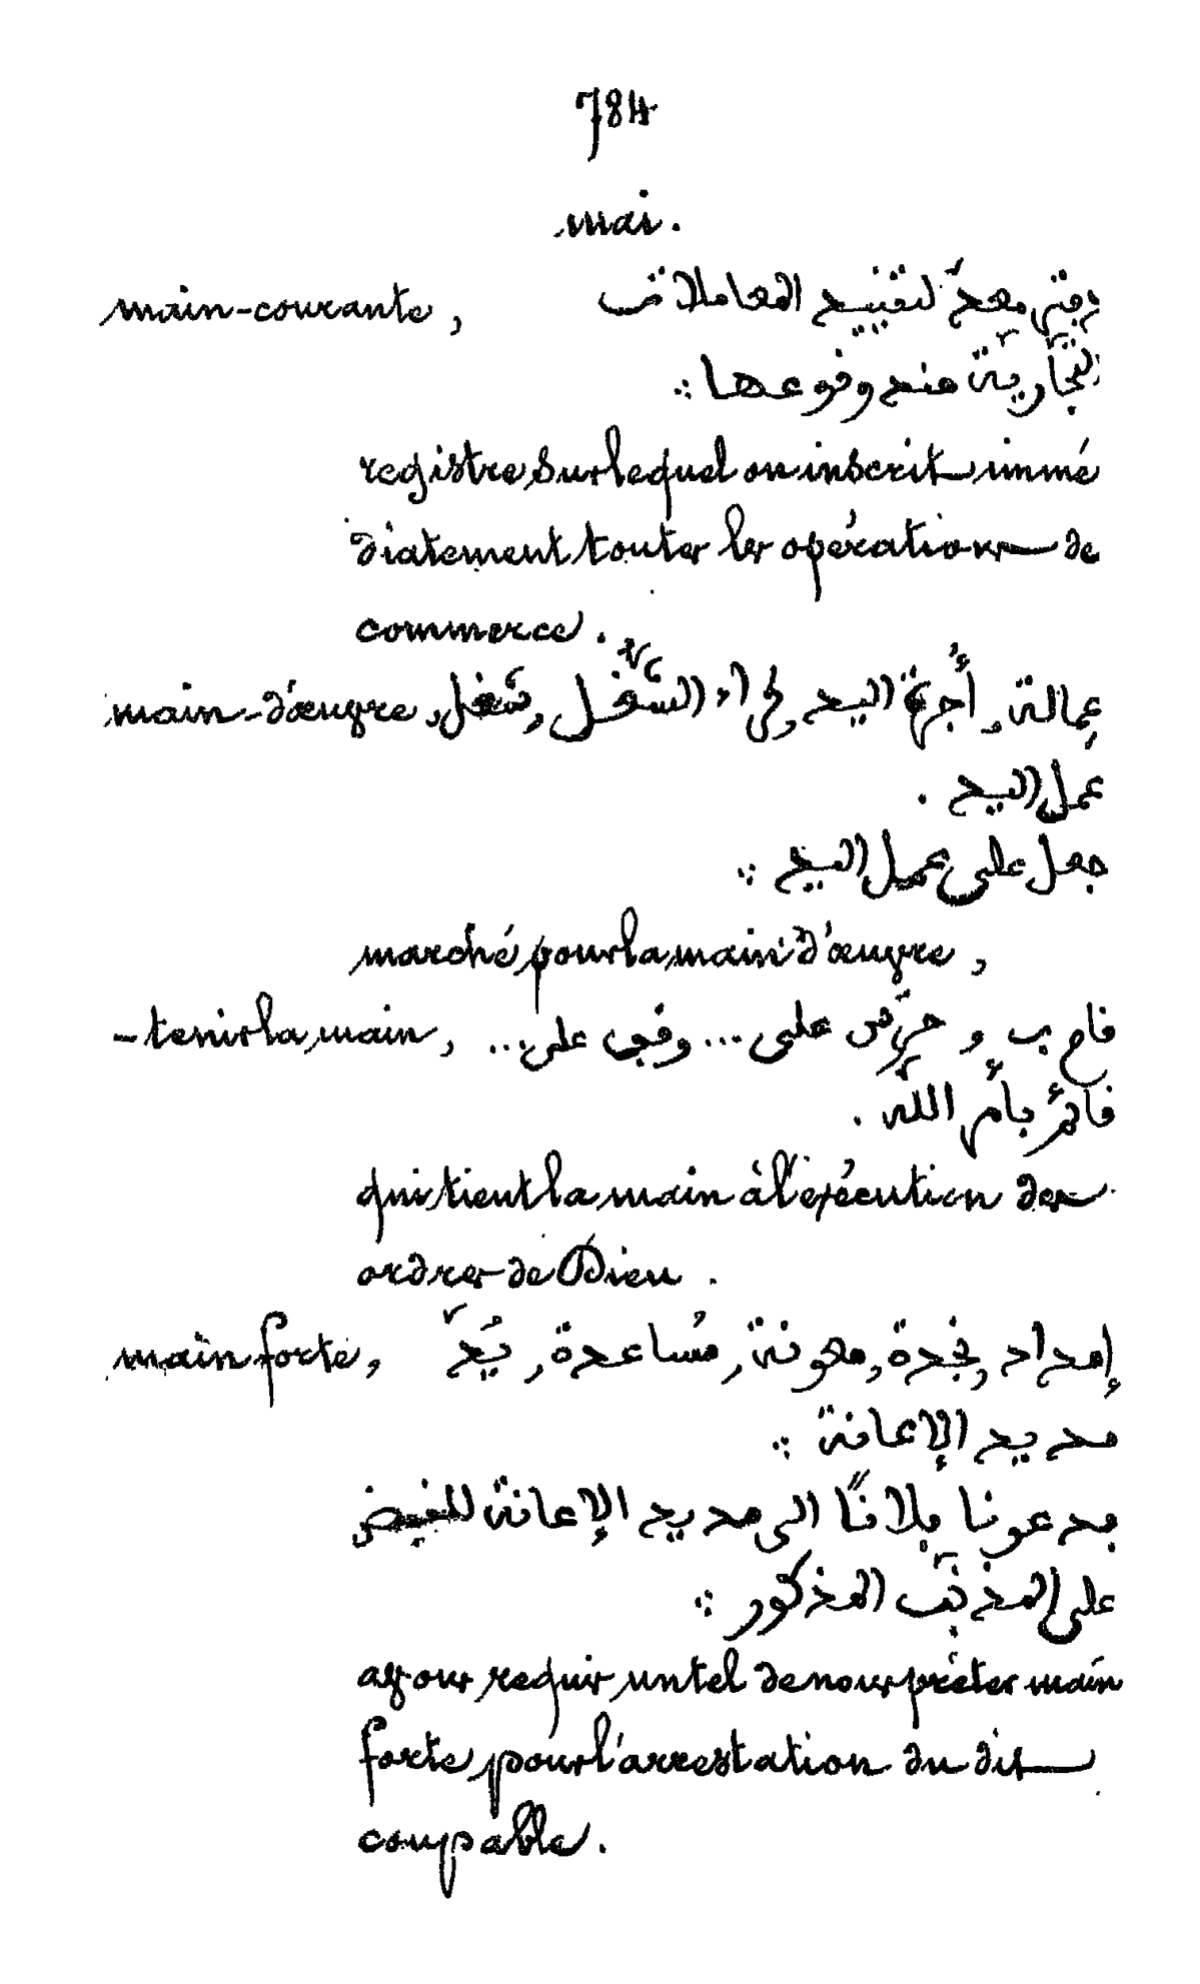 784
mai.
main-courante, دفتر معدّ لتقييد المعاملات
التجّاريّة عند وقوعها ؞
registre sur lequel on inscrit immé
diatement toutes les opérations de
commerce.
main-d'œuvre, عِمالة, أُجرة اليد, كراء الشّغل, شغل,
عمل اليد.
جعل على عمل اليد ؞
marché pour la main d'œuvre,
- tenir la main, قام ب, و حرّص على ... وقف على ...
قائم بأمر اللّه.
qui tient la main à l'exécution des
ordres de Dieu.
main forte, إمداد, نجدة, معونة, مُساعدة, يُد
مد يد الإعانة ؞
فدعونا فلانًا الى مد يد الإعانة للقبض
على المذنّب المذكور ؞
avons requis un tel de nous prêter main
forte pour l'arrestation du dit
coupable.